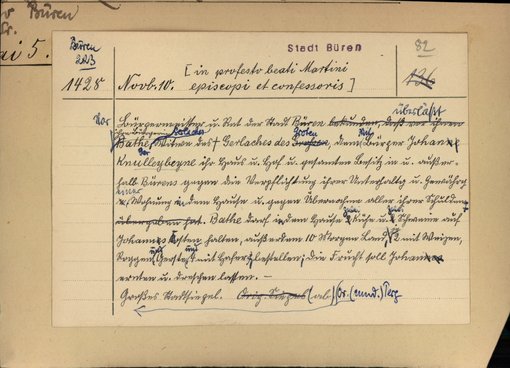 Büren
ai 5.
Büren
223
Stadt Büren
82
136
1428
Novb. 10.
[in profesto beati Martini
episcopi et confessoris]
überläßt
Vor Bürgermeister u. Rat der Stadt Büren bekunden, daß vor ihnen
Bathe, Witwe des † Gerlaches des Groten, dem Bürger Johann
Knulleybeyne ihr Haus u. Hof u. gesamten Besitz in u. außer-
halb Bürens gegen die Verpflichtung ihrer Unterhaltg u. Gewährg
einer Wohnung in dem Hause u. gegen Übernahme aller ihrer Schulden
übergeben hat. Bathe darf in dem Hause Kühe u. Schweine auf
Johanns Kosten halten, außerdem 10 Morgen Land, mit Weizen,
Roggen, Gerste und mit Hafer bestellen; die Frucht soll Johann
ernten u. dreschen lassen. —
Großes Stadtsiegel. Orig. Siegel (ab) Or. (mnd.) Perg